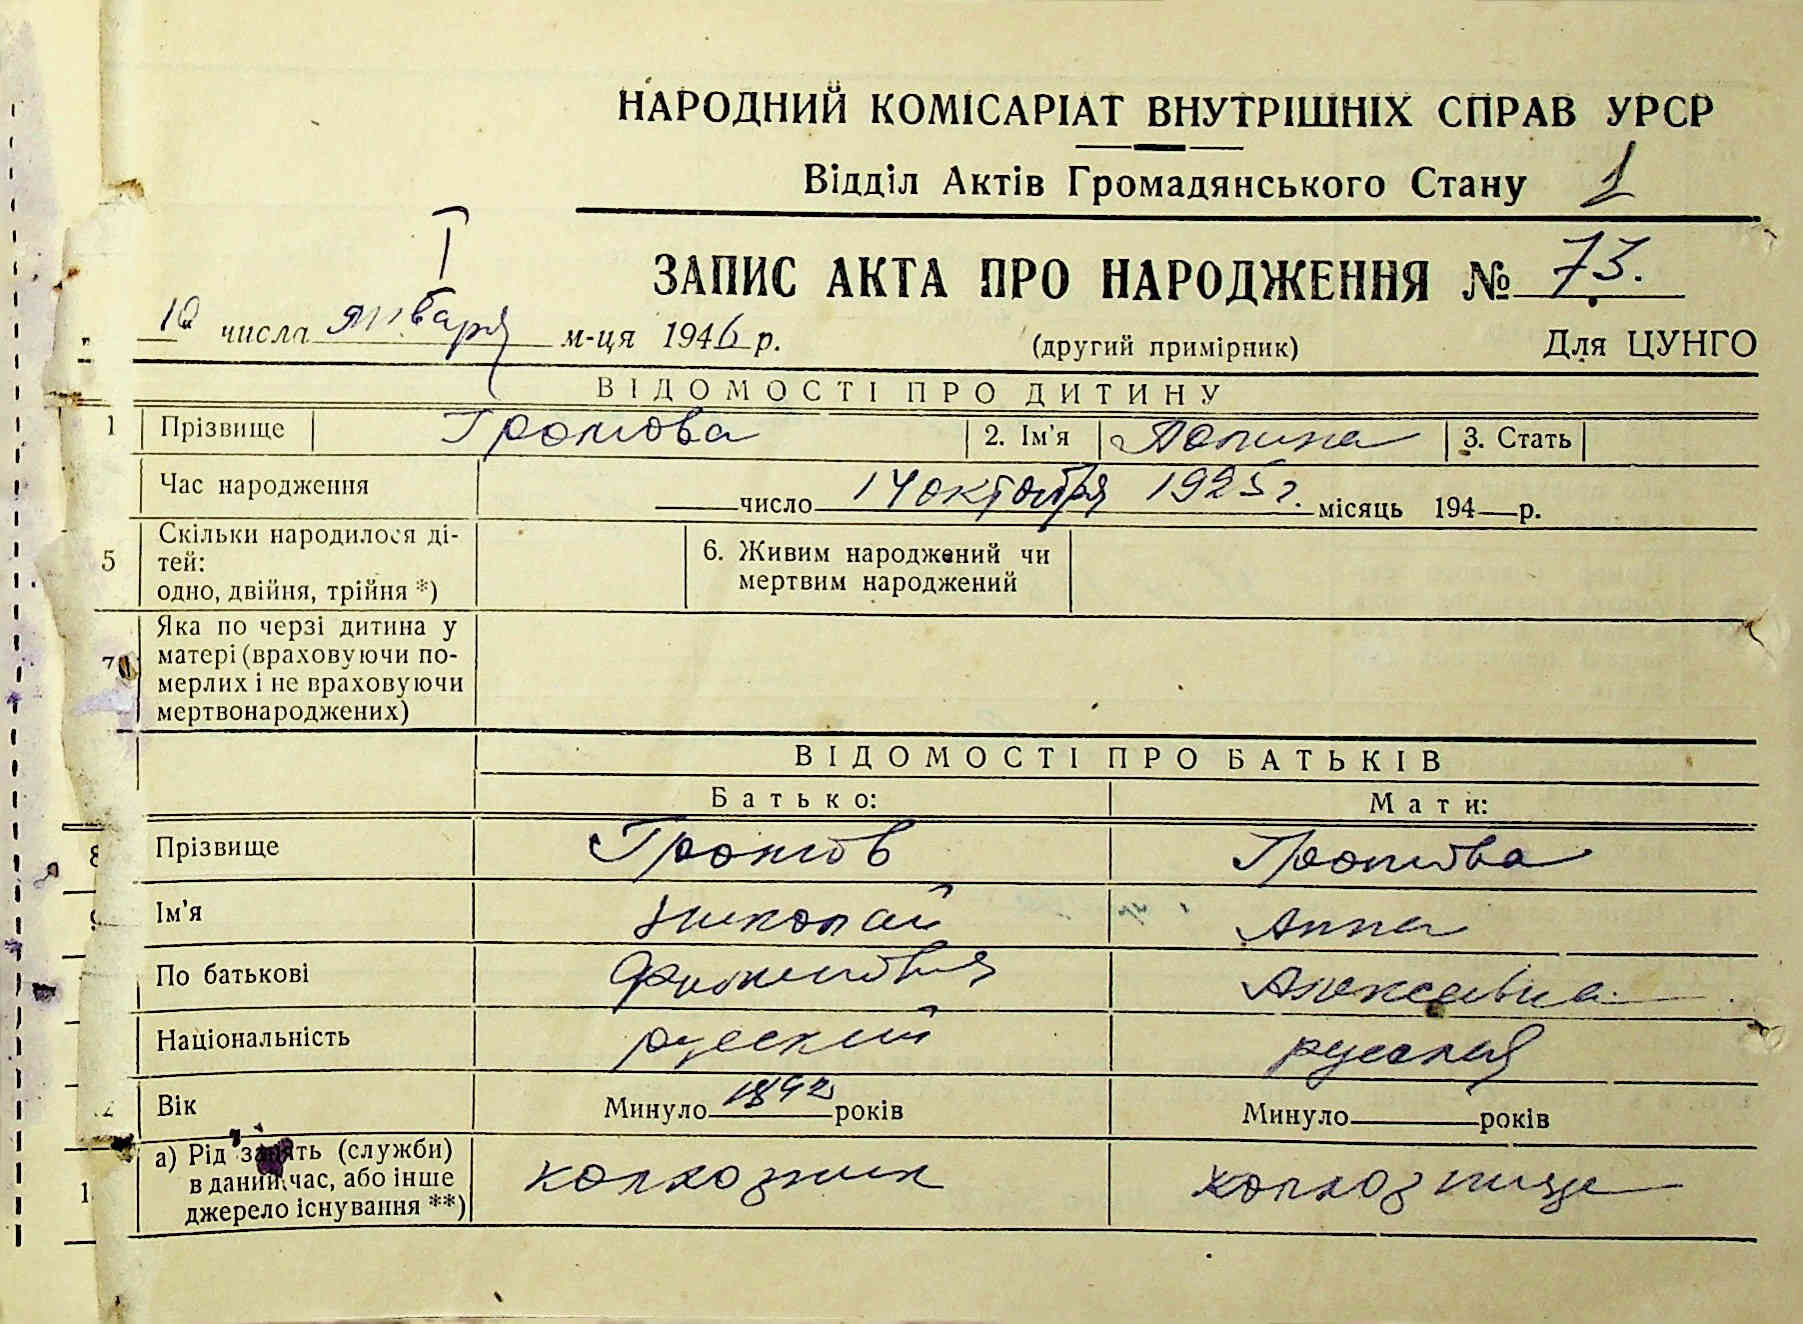 НАРОДНИЙ КОМІСАРІАТ ВНУТРІШНІХ СПРАВ УРСР
Відділ Актів Громадянського Стану 1
ЗАПИС АКТА ПРО НАРОДЖЕННЯ № 73.
10 числа января м-ця 1946 р. (другий примірник) Для ЦУНГО
ВІДОМОСТІ ПРО ДИТИНУ
1 Прізвище Громова 2. Ім'я Полина 3. Стать
Час народження число 14 октября 1925 г. місяць 194 р.
5 Скільки народилося ді-
тей:
одно, двійня, трійня *)
6. Живим народжений чи
мертвим народжений
7 Яка по черзі дитина у
матері (враховуючи по-
мерлих і не враховуючи
мертвонароджених)
ВІДОМОСТІ ПРО БАТЬКІВ
Батько: Мати:
8 Прізвище Громов Громова
9 Ім'я Николай Анна
По батькові Алексеевна
Національність русский русская
2 Вік Минуло 1892 років Минуло років
1 а) Рід занять (служби)
в даний час, або інше
джерело існування **)
колхозник колхозница